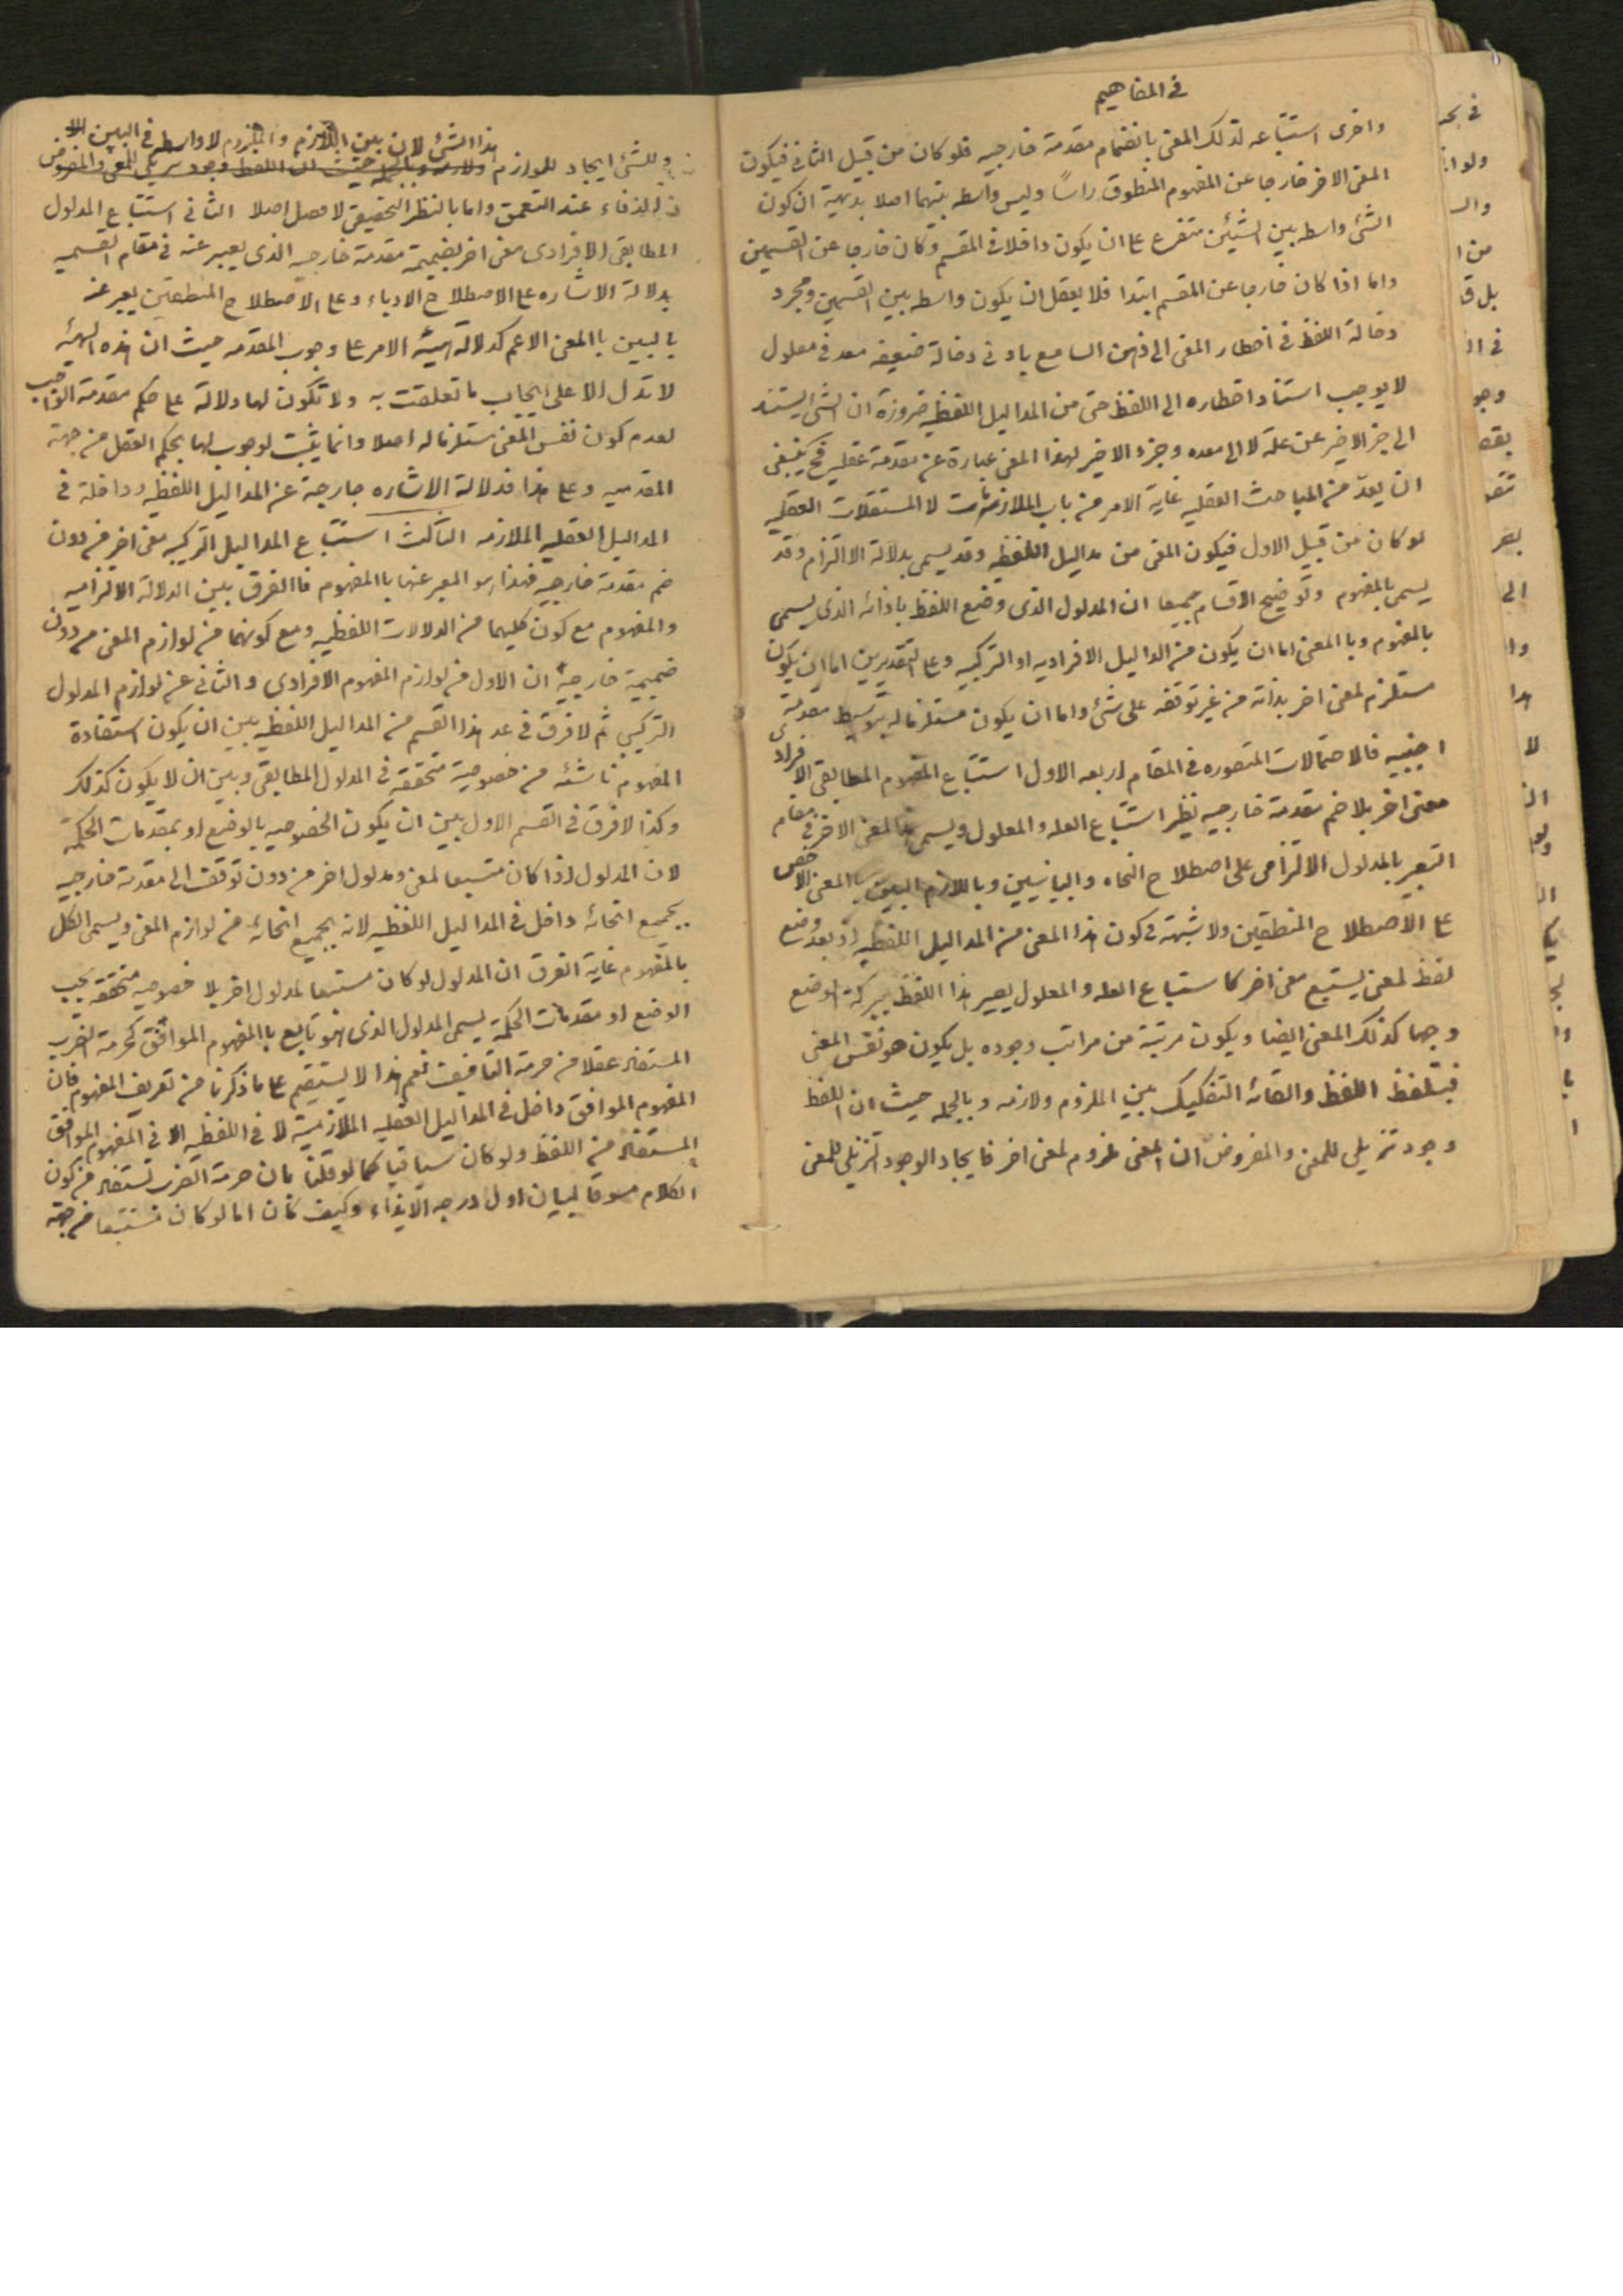 في المفاهيم
واخرى استتباعه لذلك المعنى بانضمام مقدمة خارجيه فلو كان من قبيل الثاني فيكون
المعنى الاخر خارجا عن المفهوم المنطوق راساً وليس واسطه بينهما اصلا بديهية ان كون
الشئ واسطه بين الشيئين متفرع على ان يكون داخلا في المقسم وكان خارجا عن القسمين
واما اذا كان خارجا عن المقسم ابتدا فلا يعقل ان يكون واسطه بين القسمين ومجرد
دخالة اللفظ في اخطار المعنى الى ذهن السامع بادنى دخالة ضعيفه معد في معلول
لا يوجب استناد اخطاره الى اللفظ حتى من المداليل اللفظيه ضرورة ان الشئ يستند
الى جزء الاخير عن علة لا الى معده وجزء الاخير لهذا المعنى عبارة عن مقدمة عقليه فح ينبغى
ان يعدّ من المباحث العقليه غاية الامر من باب الملازمات لا المستقلات العقليه
لو كان من قبيل الاول فيكون المعنى من مداليل اللفظيه وقد يسمى بدلالة الالتزام وقد
يسمى بالمفهوم وتوضيح الاقسام جميعا ان المدلول الذى وضع اللفظ باذائه الذى يسمى
بالمفهوم وبا المعنى اما ان يكون من المداليل الافراديه او التركبيه وعلى التقديرين اما ان يكون
مستلزم لمعنى اخر بذاته من غير توقفه على شئ واما ان يكون مستلزما له بتوسيط مقدمة
اجنبيه فالاحتمالات المتصوره في المقام اربعه الاول استتباع المفهوم المطابقى الافرادى
معنى اخر بلا ضم مقدمة خارجيه نظير استتباع العله والمعلول ويسمى المعنى الاخر في مقام
التعبير بالمدلول الالتزامى على اصطلاح النحاه والبيانيين وباللازم البين بالمعنى الاخص
على الاصطلاح المنطقين ولا شبهة في كون هذا المعنى من المداليل اللفظيه اذ بعد وضع
لفظ لمعنى يستتبع معنى اخر كاستتباع العله والمعلول يصير هذا اللفظ ببركة الوضع
وجها كذلك المعنى ايضا ويكون مرتبة من مراتب وجوده بل يكون هو نفس المعنى
فبتلفظ اللفظ والقائه التفكيك بين الملزوم ولازمه وبالجمله حيث ان اللفظ
وجود تنزيلى للمعنى والمفروض ان المعنى ملزوم لمعنى اخر فايجاد الوجود التنزيلى للمعنى
هذا الشئ لان بين اللازم والملزوم لا واسطه في البين
وللشئ ايجاد للوازم ولازمه وبالجمله حيث ان اللفظ وجود للمعنى والمفروض
عند التعمق واما بالنظر التحقيقى لا فصل اصلا الثانى استتباع المدلول
المطابقى الافرادى معنى اخر بضميمة مقدمة خارجيه الذى يعبر عنه في مقام التسميه
بدلالة الاشاره على الاصطلاح الادباء وعلى الاصطلاح المنطقين يعبر عنه
بالبين با المعنى الاعم كدلالة هيئة الامر على وجوب المقدمه حيث ان هذه الهيئة
لا تدل الا على ايجاب ما تعلقت به ولا تكون لها دلالة على حكم مقدمة الواجب
لعدم كون نفس المعنى مستلزما له اصلا وانما يثبت لوجوب لها بحكم العقل من جهة
المقدميه وعلى هذا فدلالة الاشاره خارجة عن المداليل اللفظيه وداخلة في
المداليل العقليه الملازمه الثالث استتباع المداليل التركبيه معنى اخر من دون
ضم مقدمة خارجيه فهذا هو المعبر عنها با المفهوم فالفرق بين الدلالة الالتزاميه
والمفهوم مع كون كليهما من الدلالات اللفظيه ومع كونهما من لوازم المعنى من دون
ضميمة خارجية ان الاول من لوازم المفهوم الافرادى والثانى من لوازم المدلول
التركيبي ثم لا فرق في عد هذا القسم من المداليل اللفظيه بين ان يكون استفادة
المفهوم ناشئه من خصوصية متحققة في المدلول المطابقى وبين ان لا يكون كذلك
وكذا لا فرق في القسم الاول بين ان يكون الخصوصيه بالوضع او بمقدمات الحكمة
لان المدلول اذا كان مستتبعا لمعنى ومدلول اخر من دون توقف الى مقدمة خارجيه
بجميع انحائه داخل في المداليل اللفظيه لانه بجميع انحائه من لوازم المعنى ويسمى الكل
بالمفهوم غاية الفرق ان المدلول لو كان مستتبعا لمدلول اخر بلا خصوصيه متحققة بحسب
الوضع او مقدمات الحكمة يسمى المدلول الذى هو تابع با المفهوم الموافق كحرمة الضرب
المستفاد عقلا من حرمة التافيف نعم هذا لا يستقيم على ما ذكرنا من تعريف المفهوم فان
المفهوم الموافق داخل في المداليل العقليه الملازمية لا في اللفظيه الا في المفهوم الموافق
المستفاد من اللفظ ولو كان سياقيا كما لو قلنا بان حرمة الضرب تستفاد من كون
الكلام مسوقا لبيان اول درجه الايذاء وكيف كان اما لو كان مستتبعا من جهة